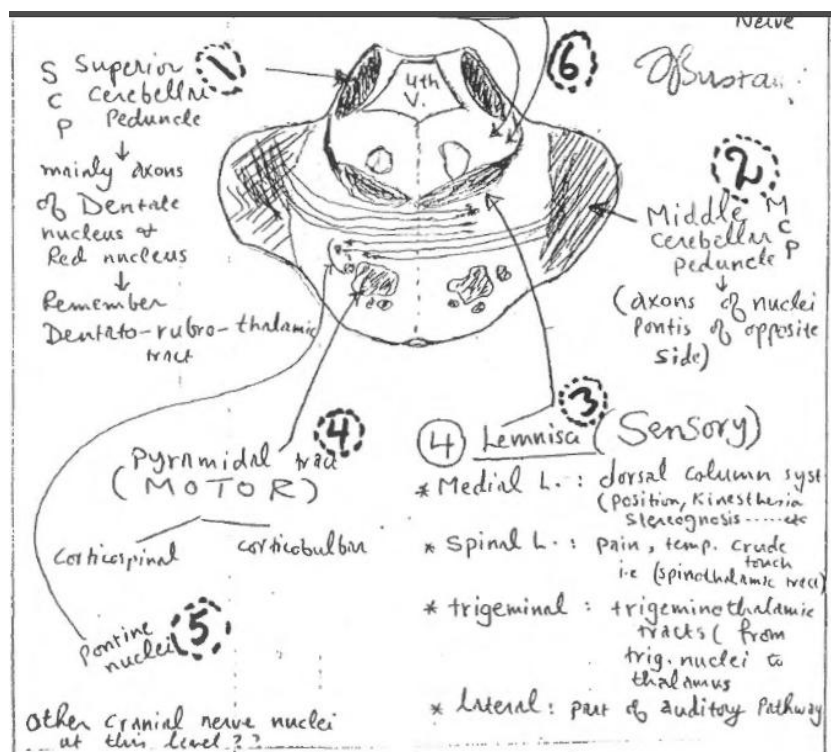 Nerve
6
S Superior 1
C Cerebellar
P Peduncle
mainly axons
of Dentate
nucleus &
Red nucleus
Remember
Dentato-rubro-thalamic
tract
4th
V.
2
Middle M
cerebellar C
peduncle P
(axons of nuclei
Pontis of opposite
side)
4
Pyramidal tract
(MOTOR)
corticospinal
corticobulbar
5
pontine
nuclei
other cranial nerve nuclei
at this level ??
3
4 Lemnisci (Sensory)
* Medial L. : dorsal column syst
(position, Kinesthesia
Stereognosis ..... etc
* Spinal L. : pain, temp. crude
touch
i.e (spinothalamic tract)
* trigeminal : trigeminothalamic
tracts ( from
trig. nuclei to
thalamus
* Lateral : part of auditory Pathway